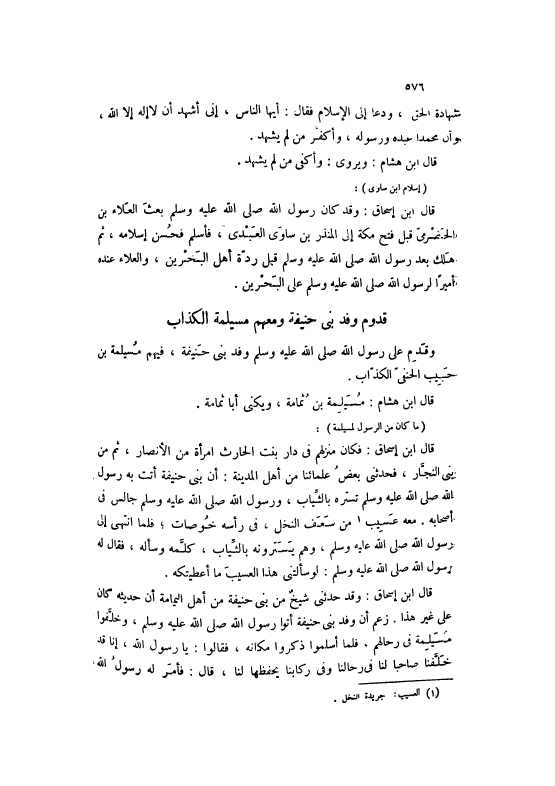 ٥٧٦
بشهادة الحق ، ودعا إلى الإسلام فقال : أيها الناس ، إنى أشهد أن لاإله إلا الله ،
وأن محمدا عبده ورسوله ، وأكفِّر من لم يشهد .
قال ابن هشام : ويروى : وأكفى من لم يشهد .
( إسلام ابن ساوى ) :
قال ابن إسحاق : وقد كان رسول الله صلى الله عليه وسلم بعث العَلاء بن
الحَضْرمىّ قبل فتح مكة إلى المنذر بن ساوَى العَبْدى ، فأسلم فحَسُن إسلامه ، ثم
هلك بعد رسول الله صلى الله عليه وسلم قبل ردّة أهل البَحْرين ، والعلاء عنده
أميرًا لرسول الله صلى الله عليه وسلم على البَحْرين .
قدوم وفد بنى حنيفة ومعهم مسيلمة الكذاب
وقَدِم على رسول الله صلى الله عليه وسلم وفد بنى حَنيفة ، فيهم مُسيلمة بن
حَبيب الحنفىّ الكذّاب .
قال ابن هشام : مُسَيلِمة بن ثُمامة ، ويكنى أبا ثمامة .
( ما كان من الرسول لمسيلمة ) :
قال ابن إسحاق : فكان منزلهم فى دار بنت الحارث امرأة من الأنصار ، ثم من
بنى النجَّار ، فحدثنى بعضُ علمائنا من أهل المدينة : أن بنى حنيفة أتت به رسول
الله صلى الله عليه وسلم تستره بالثِّياب ، ورسول الله صلى الله عليه وسلم جالس فى
أصحابه . معه عَسِيب ١ من سَعَف النخل ، فى رأسه خُوصات ؛ فلما انتهى إلى
رسول الله صلى الله عليه وسلم ، وهم يَسْتَرونه بالثِّياب ، كلَّمه وسأله ، فقال له
رسول الله صلى الله عليه وسلم : لوسألتنى هذا العسيبَ ما أعطيتكه .
قال ابن إسحاق : وقد حدثنى شيخٌ من بنى حنيفة من أهل اليمامة أن حديثه كان
على غير هذا . زعم أن وفد بنى حنيفة أتوا رسول الله صلى الله عليه وسلم ، وخلَّفوا
مُسَيلِمة فى رحالهم ، فلما أسلموا ذكروا مكانه ، فقالوا : يا رسول الله ، إنا قد
خَلَّفنا صاحبا لنا فى رحالنا وفى ركابنا يحفظها لنا ، قال : فأمَر له رسولُ الله
(١) العسيب : جريدة النخل .